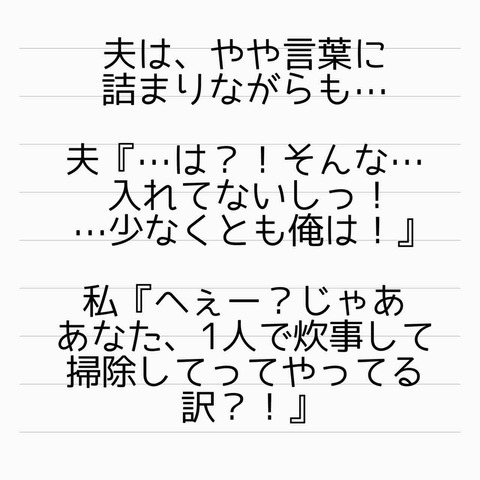 夫は、やや言葉に
詰まりながらも…
夫『…は？！そんな…
入れてないしっ！
…少なくとも俺は！』
私『へぇー？じゃあ
あなた、1人で炊事して
掃除してってやってる
訳？！』